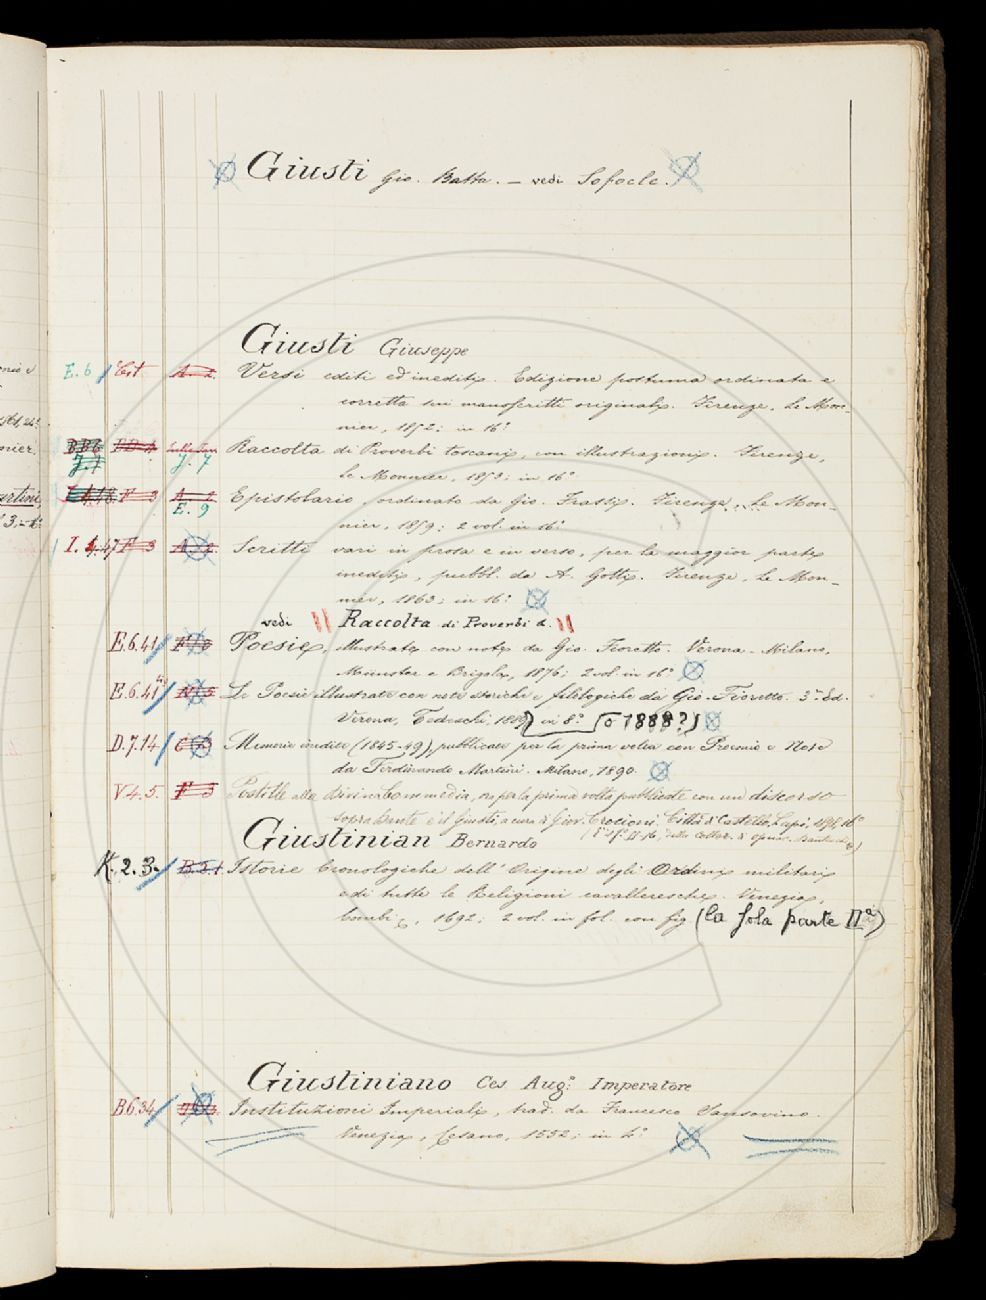 Giusti Gio. Batta. — vedi Sofocle.
Giusti Giuseppe
E. 6 A 2. Versi editi ed inediti. Edizione postuma ordinata e
corretta sui manoscritti originali. Firenze, Le Mon-
nier, 1852; in 16.º
BB6 DD 4 Raccolta di Proverbi toscani, con illustrazioni. Firenze,
J. 7 J. 7
Le Monnier, 1853; in 16.º
F 3 A 2 Epistolario, ordinato da Gio. Frassi. Firenze, Le Mon-
E. 9
nier, 1859; 2 vol. in 16.º
I. 4.47 F 3 A 2. Scritti vari in prosa e in verso, per la maggior parte
inediti, pubbl. da A. Gotti. Firenze, Le Mon-
nier, 1863; in 16.º
vedi Raccolta di Proverbi &.
E.6.41 Poesie, illustrate con note da Gio. Fioretto. Verona-Milano,
Münster e Brigola, 1876; 2 vol. in 16.º
E.6.41 Le Poesie illustrate con note storiche e filologiche da Gio. Fioretto. 3.ª Ed.
Verona, Tedeschi, in 8.º (o 1888?)
D.7.14 Memorie inedite (1845-49), pubblicate per la prima volta con Proemio e Note
da Ferdinando Martini. Milano, 1890.
V 4.5. F 3 Postille alla Divina Commedia, ora per la prima volta pubblicate con un discorso
sopra Dante e il Giusti, a cura di Giov. Crocioni. Città di Castello, Lapi, 1898, 16º
Giustinian Bernardo
K. 2. 3. B.5.1 Istorie Cronologiche dell' Origine degli Ordini militari
e di tutte le Religioni cavalleresche. Venezia,
Combi, 1692; 2 vol. in fol. con fig. (la sola parte IIª)
Giustiniano Ces Aug.º Imperatore
B.6.34 Instituzioni Imperiali, trad. da Francesco Sansovino
Venezia, Cesano, 1552; in 4.º